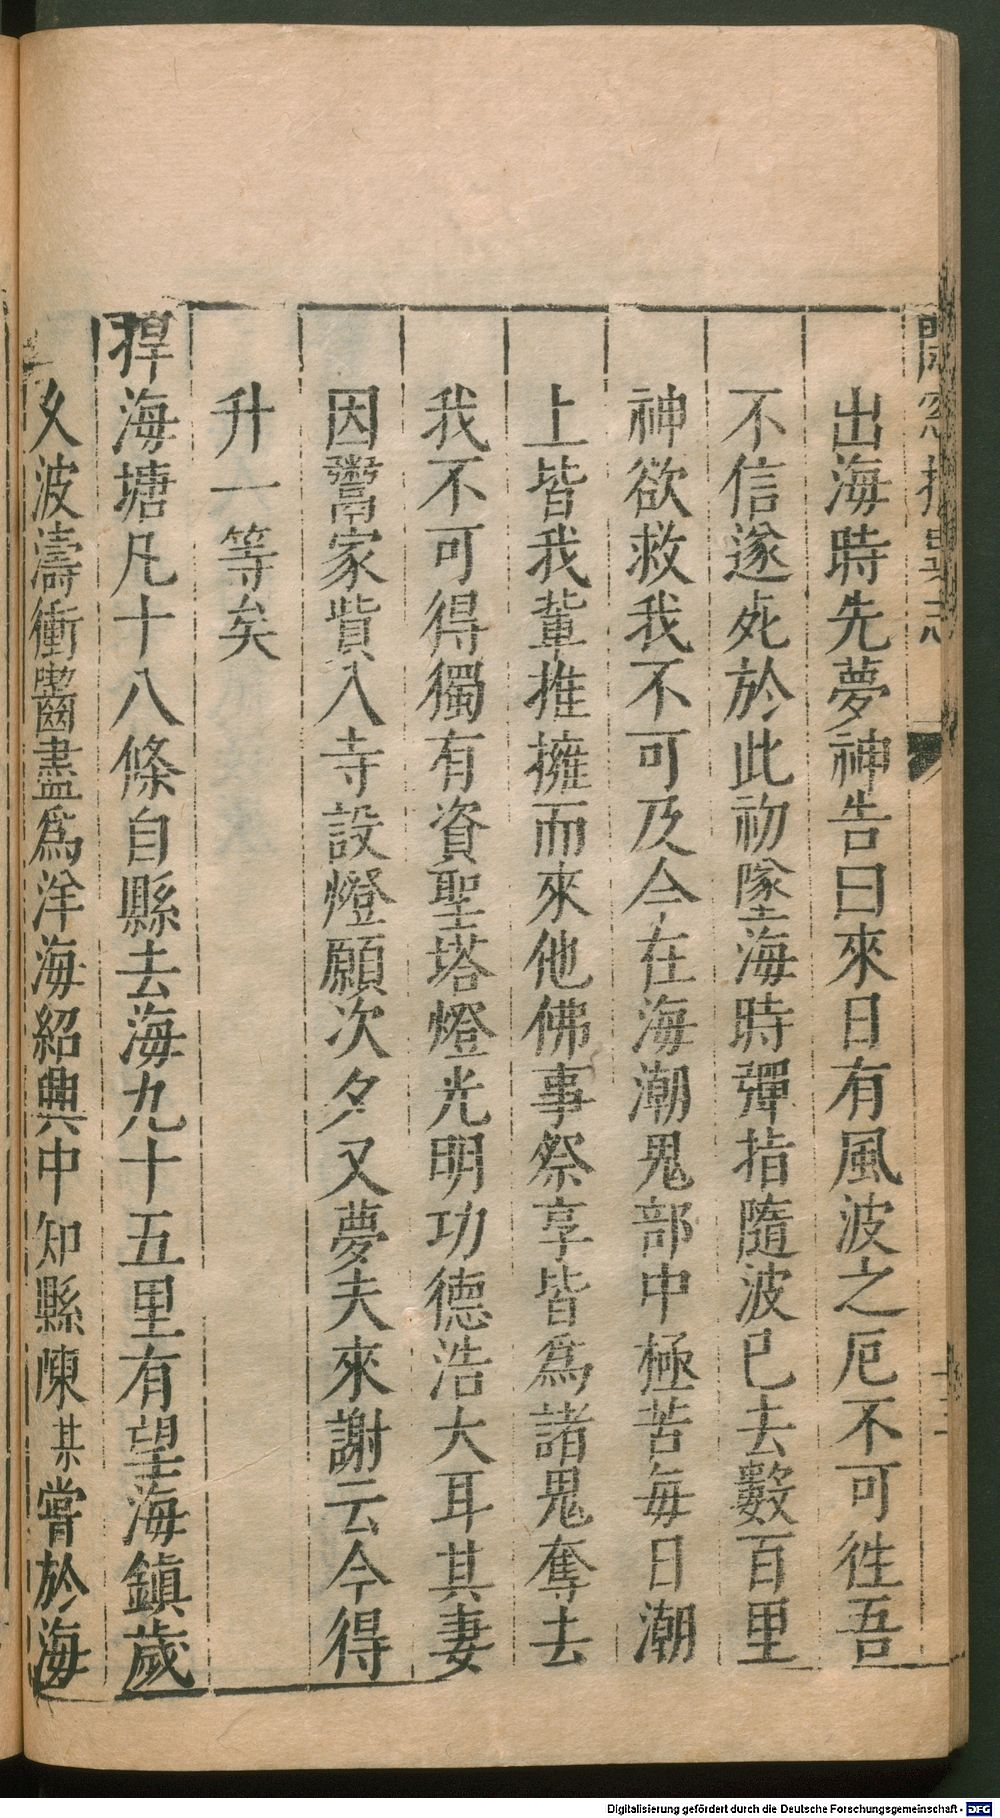 出海時先夢神告曰來日有風波之厄不可徃吾
不信遂死於此初墜海時彈指隨波已去數百里
神欲救我不可及今在海潮鬼部中極苦每日潮
上皆我輩推擁而來他佛事祭享皆為諸鬼奪去
我不可得獨有資聖塔燈光明功德浩大耳其妻
因鬻家貲入寺設燈願次夕又夢夫來謝云今得
升一等矣
捍海塘凡十八條自縣去海九十五里有望海鎮歲
久波濤衝齧盡為洋海紹興中知縣陳某嘗於海
Digitalisierung gefördert durch die Deutsche Forschungsgemeinschaft - DFG